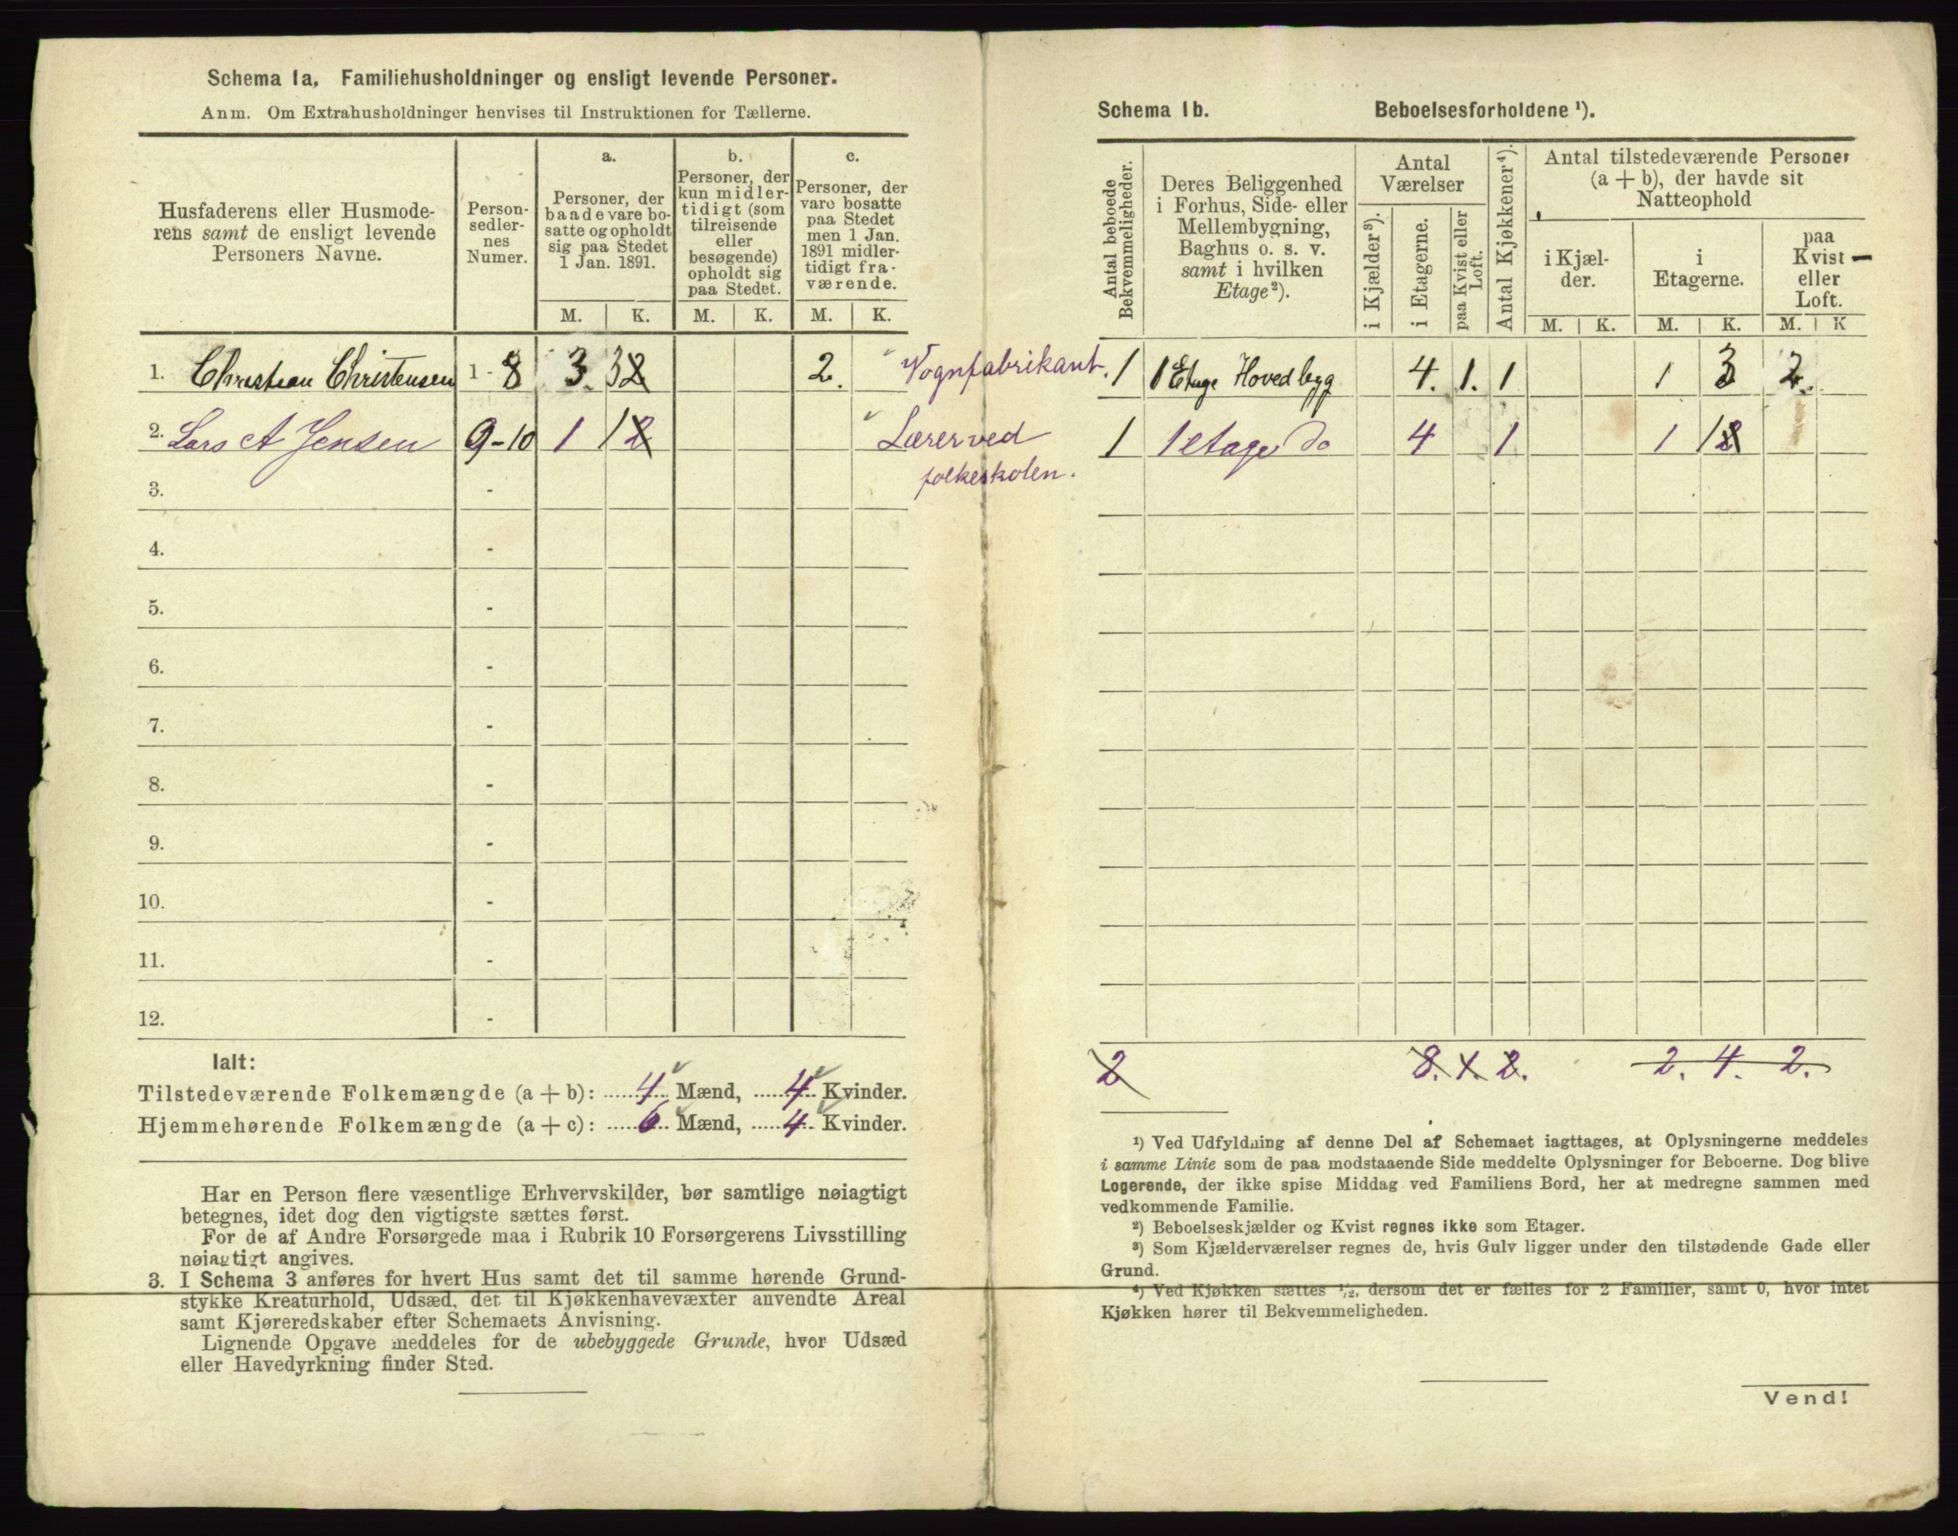 Schema 1a. Familiehusholdninger og ensligt levende Personer.
Anm. Om Extrahusholdninger henvises til Instruktionen for Tællerne.
Husfaderens eller Husmode-
rens samt de ensligt levende
Personers Navne.
Person-
sedler-
nes
Numer.
a.
Personer, der
baade vare bo-
satte og opholdt
sig paa Stedet
1 Jan. 1891.
b.
Personer, der
kun midler-
tidigt (som
tilreisende
eller
besøgende)
opholdt sig
paa Stedet.
c.
Personer, der
vare bosatte
paa Stedet
men 1 Jan.
1891 midler-
tidigt fra-
værende.
M. K. M. K. M. K.
1. Christian Christensen 1 - 8 3. 3 2 2. Vognfabrikant.
2. Lars A Jensen 9-10 1 1 2 Lærer ved
folkeskolen.
3. -
4. -
5. -
6. -
7. -
8. -
9. -
10. -
11. -
12. -
Ialt:
Tilstedeværende Folkemængde (a + b): 4 Mænd, 4 Kvinder.
Hjemmehørende Folkemængde (a + c): 6 Mænd, 4 Kvinder.
Har en Person flere væsentlige Erhvervskilder, bør samtlige nøiagtigt
betegnes, idet dog den vigtigste sættes først.
For de af Andre Forsørgede maa i Rubrik 10 Forsørgerens Livsstilling
nøiagtigt angives.
3. I Schema 3 anføres for hvert Hus samt det til samme hørende Grund-
stykke Kreaturhold, Udsæd, det til Kjøkkenhavevæxter anvendte Areal
samt Kjøreredskaber efter Schemaets Anvisning.
Lignende Opgave meddeles for de ubebyggede Grunde, hvor Udsæd
eller Havedyrkning finder Sted.
Schema 1b. Beboelsesforholdene ¹).
Antal beboede
Bekvemmeligheder.
Deres Beliggenhed
i Forhus, Side- eller
Mellembygning,
Baghus o. s. v.
samt i hvilken
Etage²).
Antal
Værelser
i Kjælder³).
i Etagerne.
paa Kvist eller
Loft.
Antal Kjøkkener⁴).
Antal tilstedeværende Personer
(a + b), der havde sit
Natteophold
i Kjæl-
der.
i
Etagerne.
paa
Kvist
eller
Loft.
M. K. M. K. M. K
1 1 Etage Hovedbyg 4. 1. 1 1 3 2.
1 1 etage Do 4 1 1 1 2
2 8. 1. 2. 2. 4. 2.
¹) Ved Udfyldning af denne Del af Schemaet iagttages, at Oplysningerne meddeles
i samme Linie som de paa modstaaende Side meddelte Oplysninger for Beboerne. Dog blive
Logerende, der ikke spise Middag ved Familiens Bord, her at medregne sammen med
vedkommende Familie.
²) Beboelseskjælder og Kvist regnes ikke som Etager.
³) Som Kjælderværelser regnes de, hvis Gulv ligger under den tilstødende Gade eller
Grund.
⁴) Ved Kjøkken sættes ¹/₂, dersom det er fælles for 2 Familier, samt 0, hvor intet
Kjøkken hører til Bekvemmeligheden.
Vend!